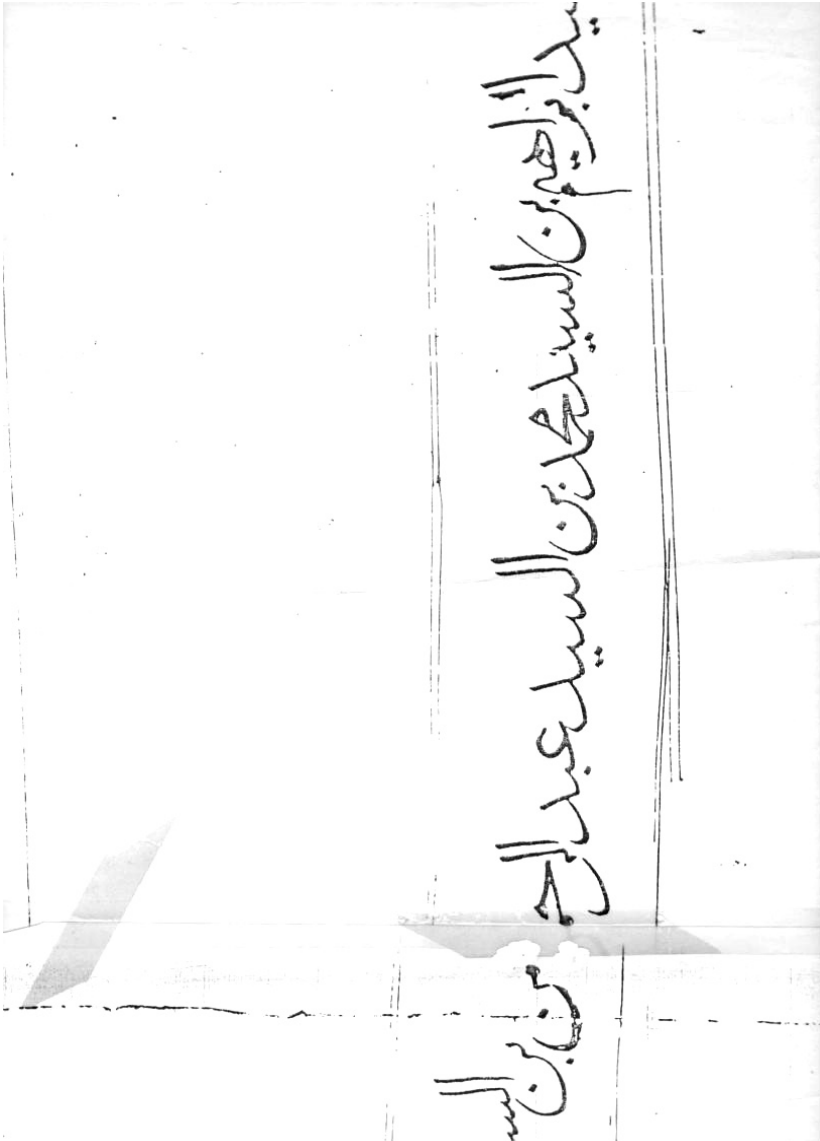 يد ابراهيم بن السيد محمد بن السيد عبد الرحمن بن الس